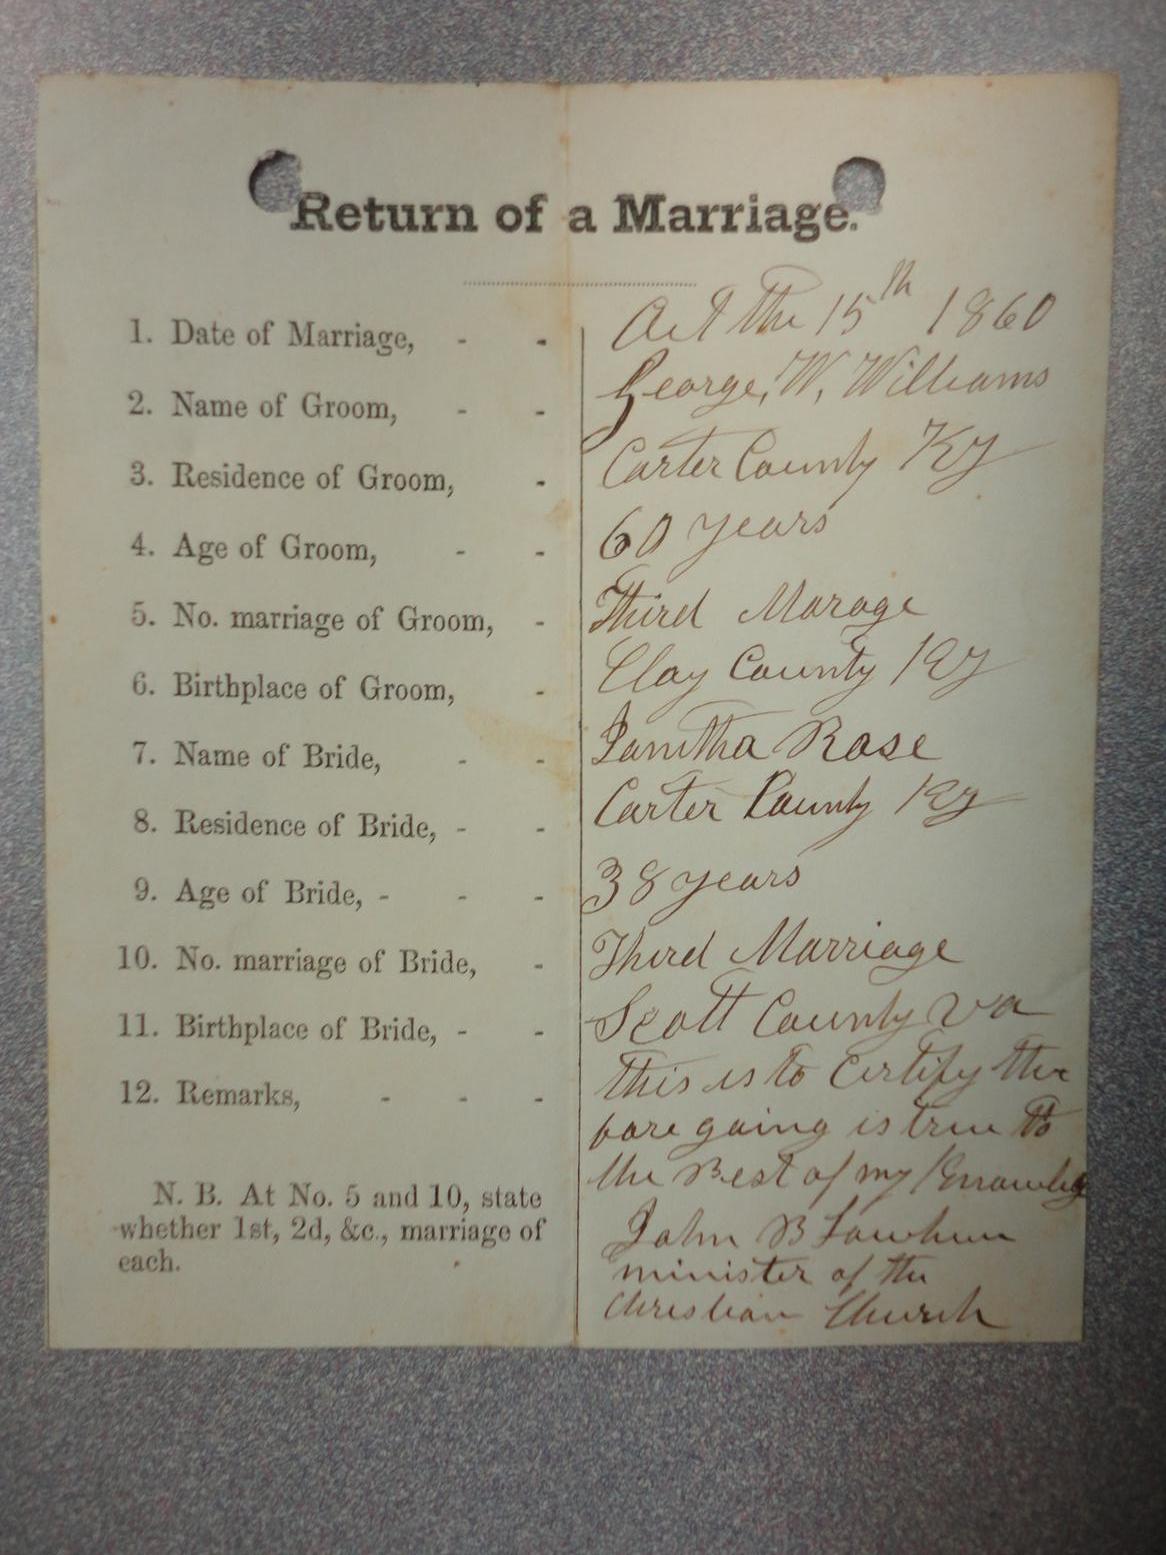 Return of a Marriage.
1. Date of Marriage, - - Oct the 15th 1860
2. Name of Groom, - - George, W, Williams
3. Residence of Groom, - Carter County Ky
4. Age of Groom, - - 60 years
5. No. marriage of Groom, - Third Marage
6. Birthplace of Groom, - Clay County Ky
7. Name of Bride, - - Ianitha Rose
8. Residence of Bride, - - Carter County Ky
9. Age of Bride, - - - 38 years
10. No. marriage of Bride, - Third Marriage
11. Birthplace of Bride, - - Scott County Va
12. Remarks, - - - this is to Certify the
fore going is true to
the Best of my
N. B. At No. 5 and 10, state
whether 1st, 2d, &c., marriage of
each.
John B
minister of the
Christian Church